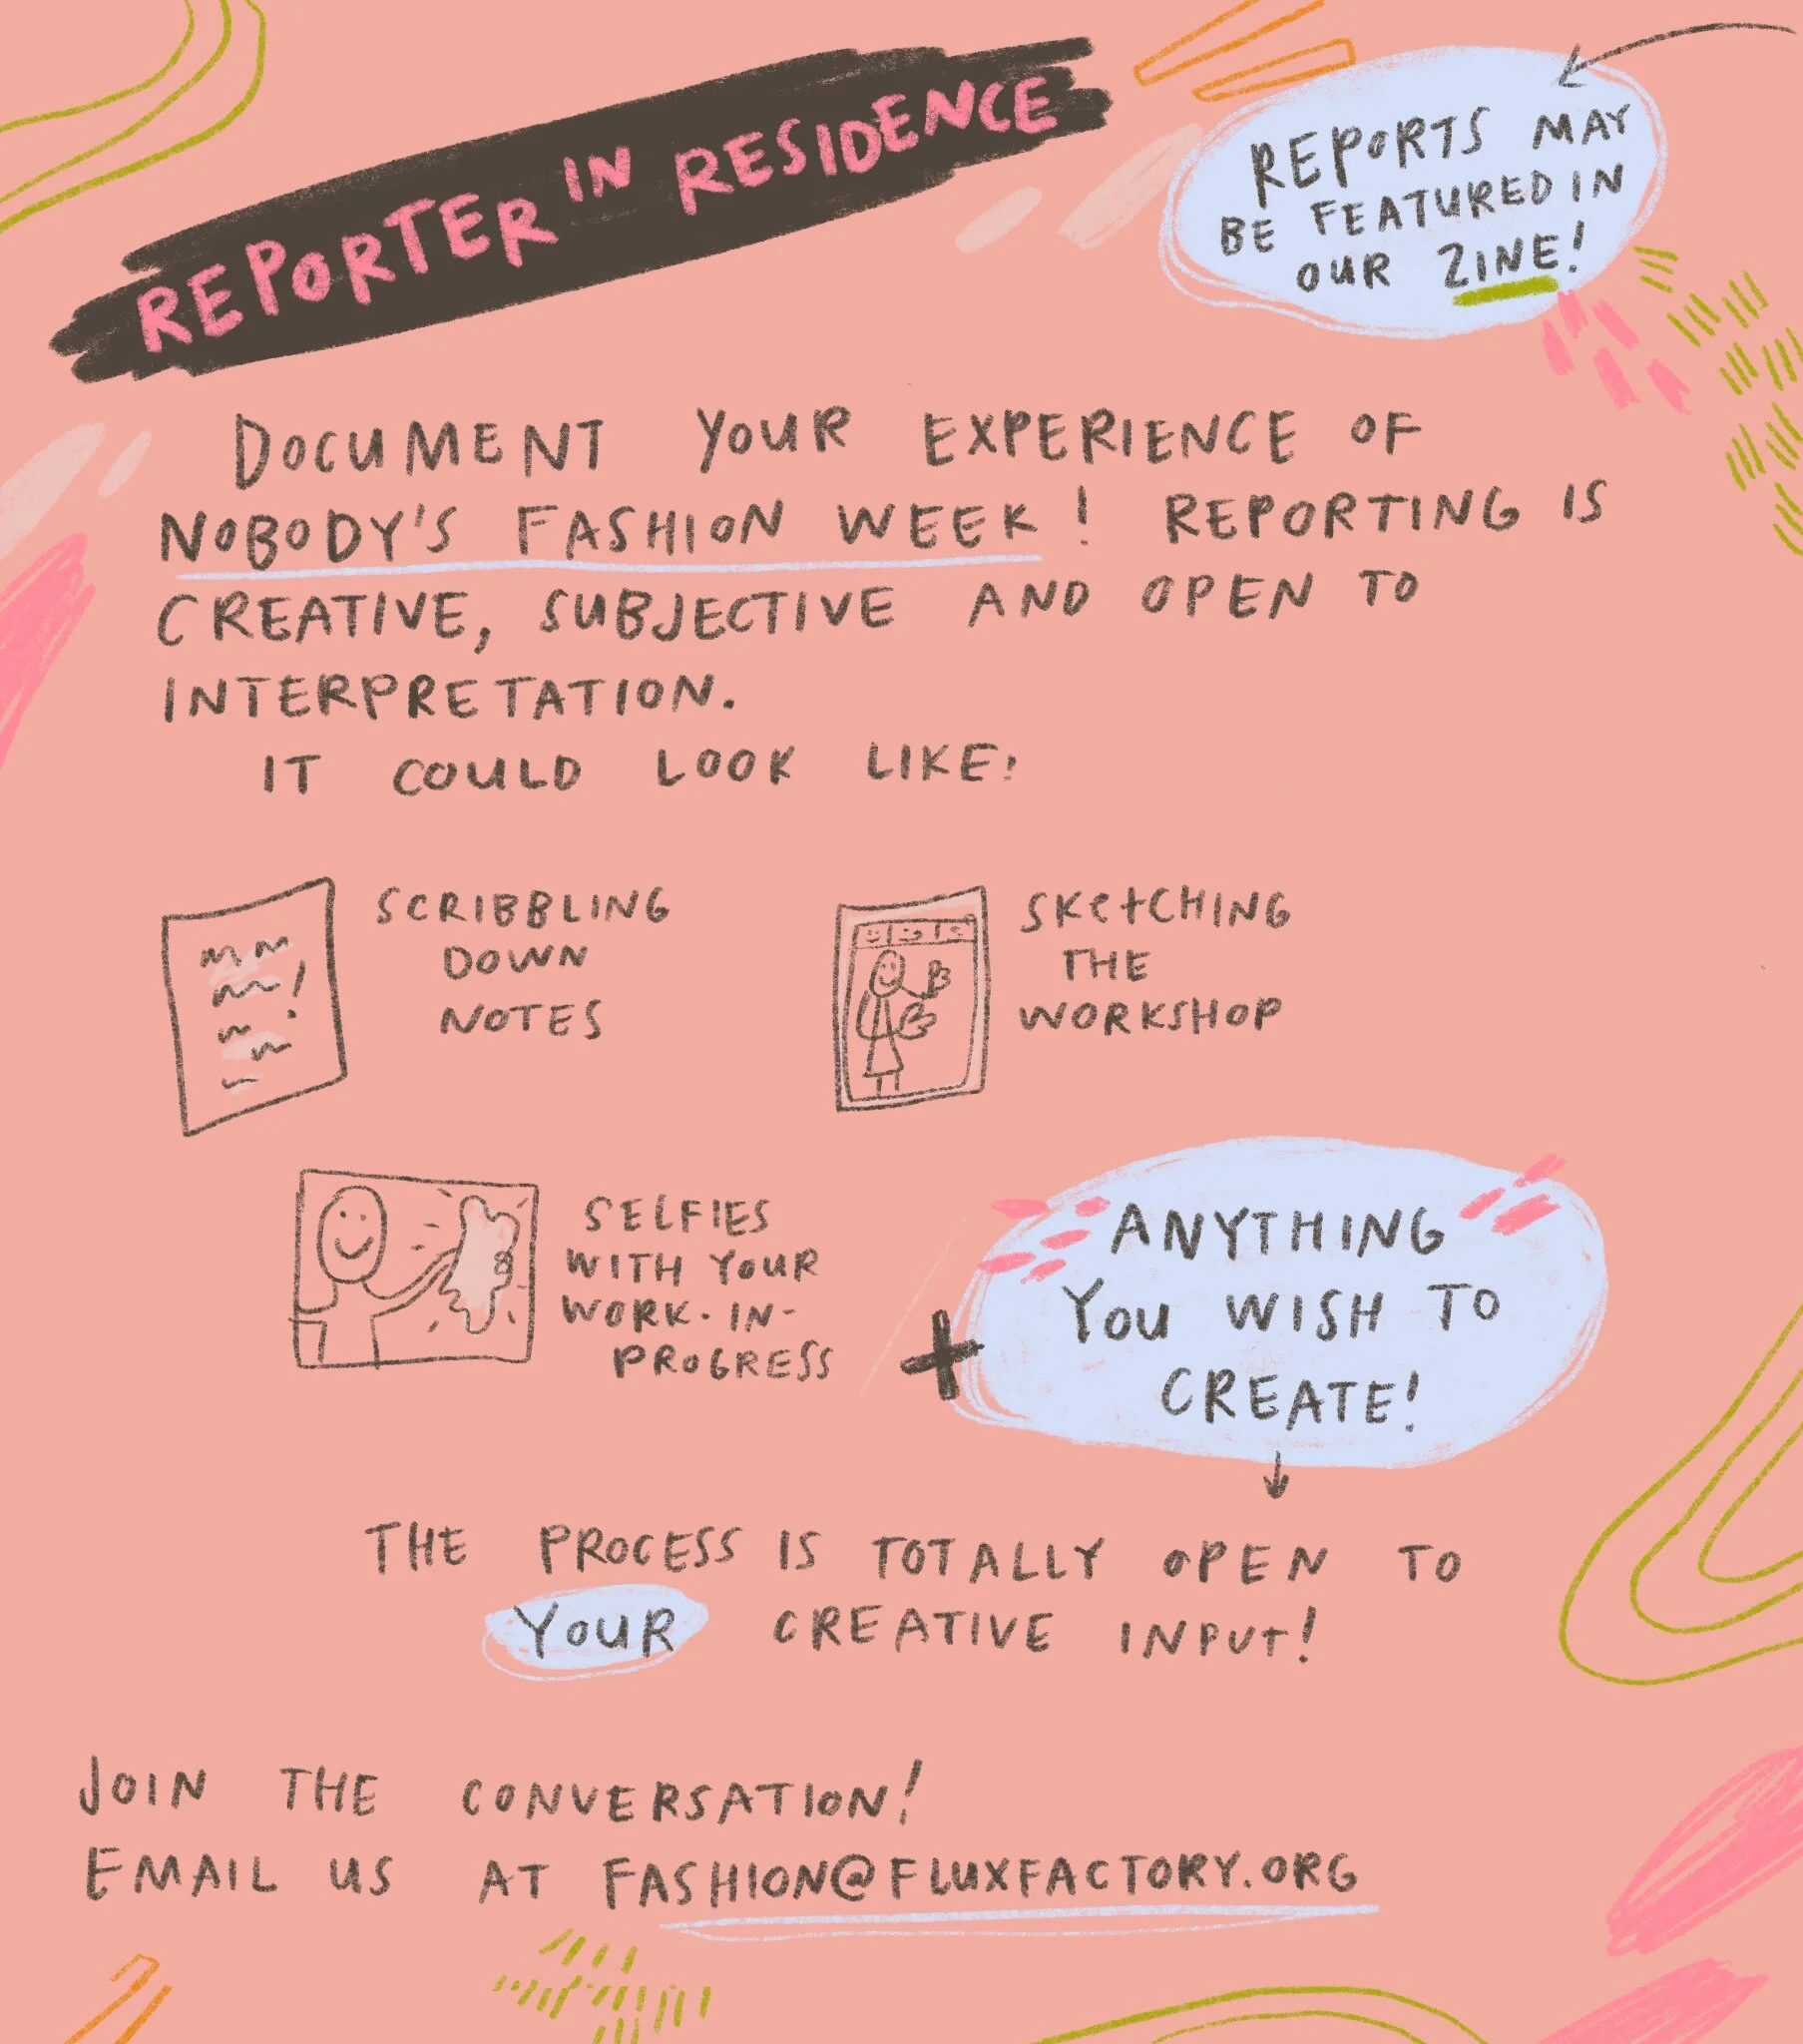 REPORTER IN RESIDENCE
REPORTS MAY
BE FEATURED IN
OUR ZINE!
DOCUMENT YOUR EXPERIENCE OF
NOBODY'S FASHION WEEK! REPORTING IS
CREATIVE, SUBJECTIVE AND OPEN TO
INTERPRETATION.
IT COULD LOOK LIKE:
SCRIBBLING
DOWN
NOTES
SKETCHING
THE
WORKSHOP
SELFIES
WITH YOUR
WORK-IN-
PROGRESS
+
ANYTHING
YOU WISH TO
CREATE!
THE PROCESS IS TOTALLY OPEN TO
YOUR CREATIVE INPUT!
JOIN THE CONVERSATION!
EMAIL US AT FASHION@FLUXFACTORY.ORG